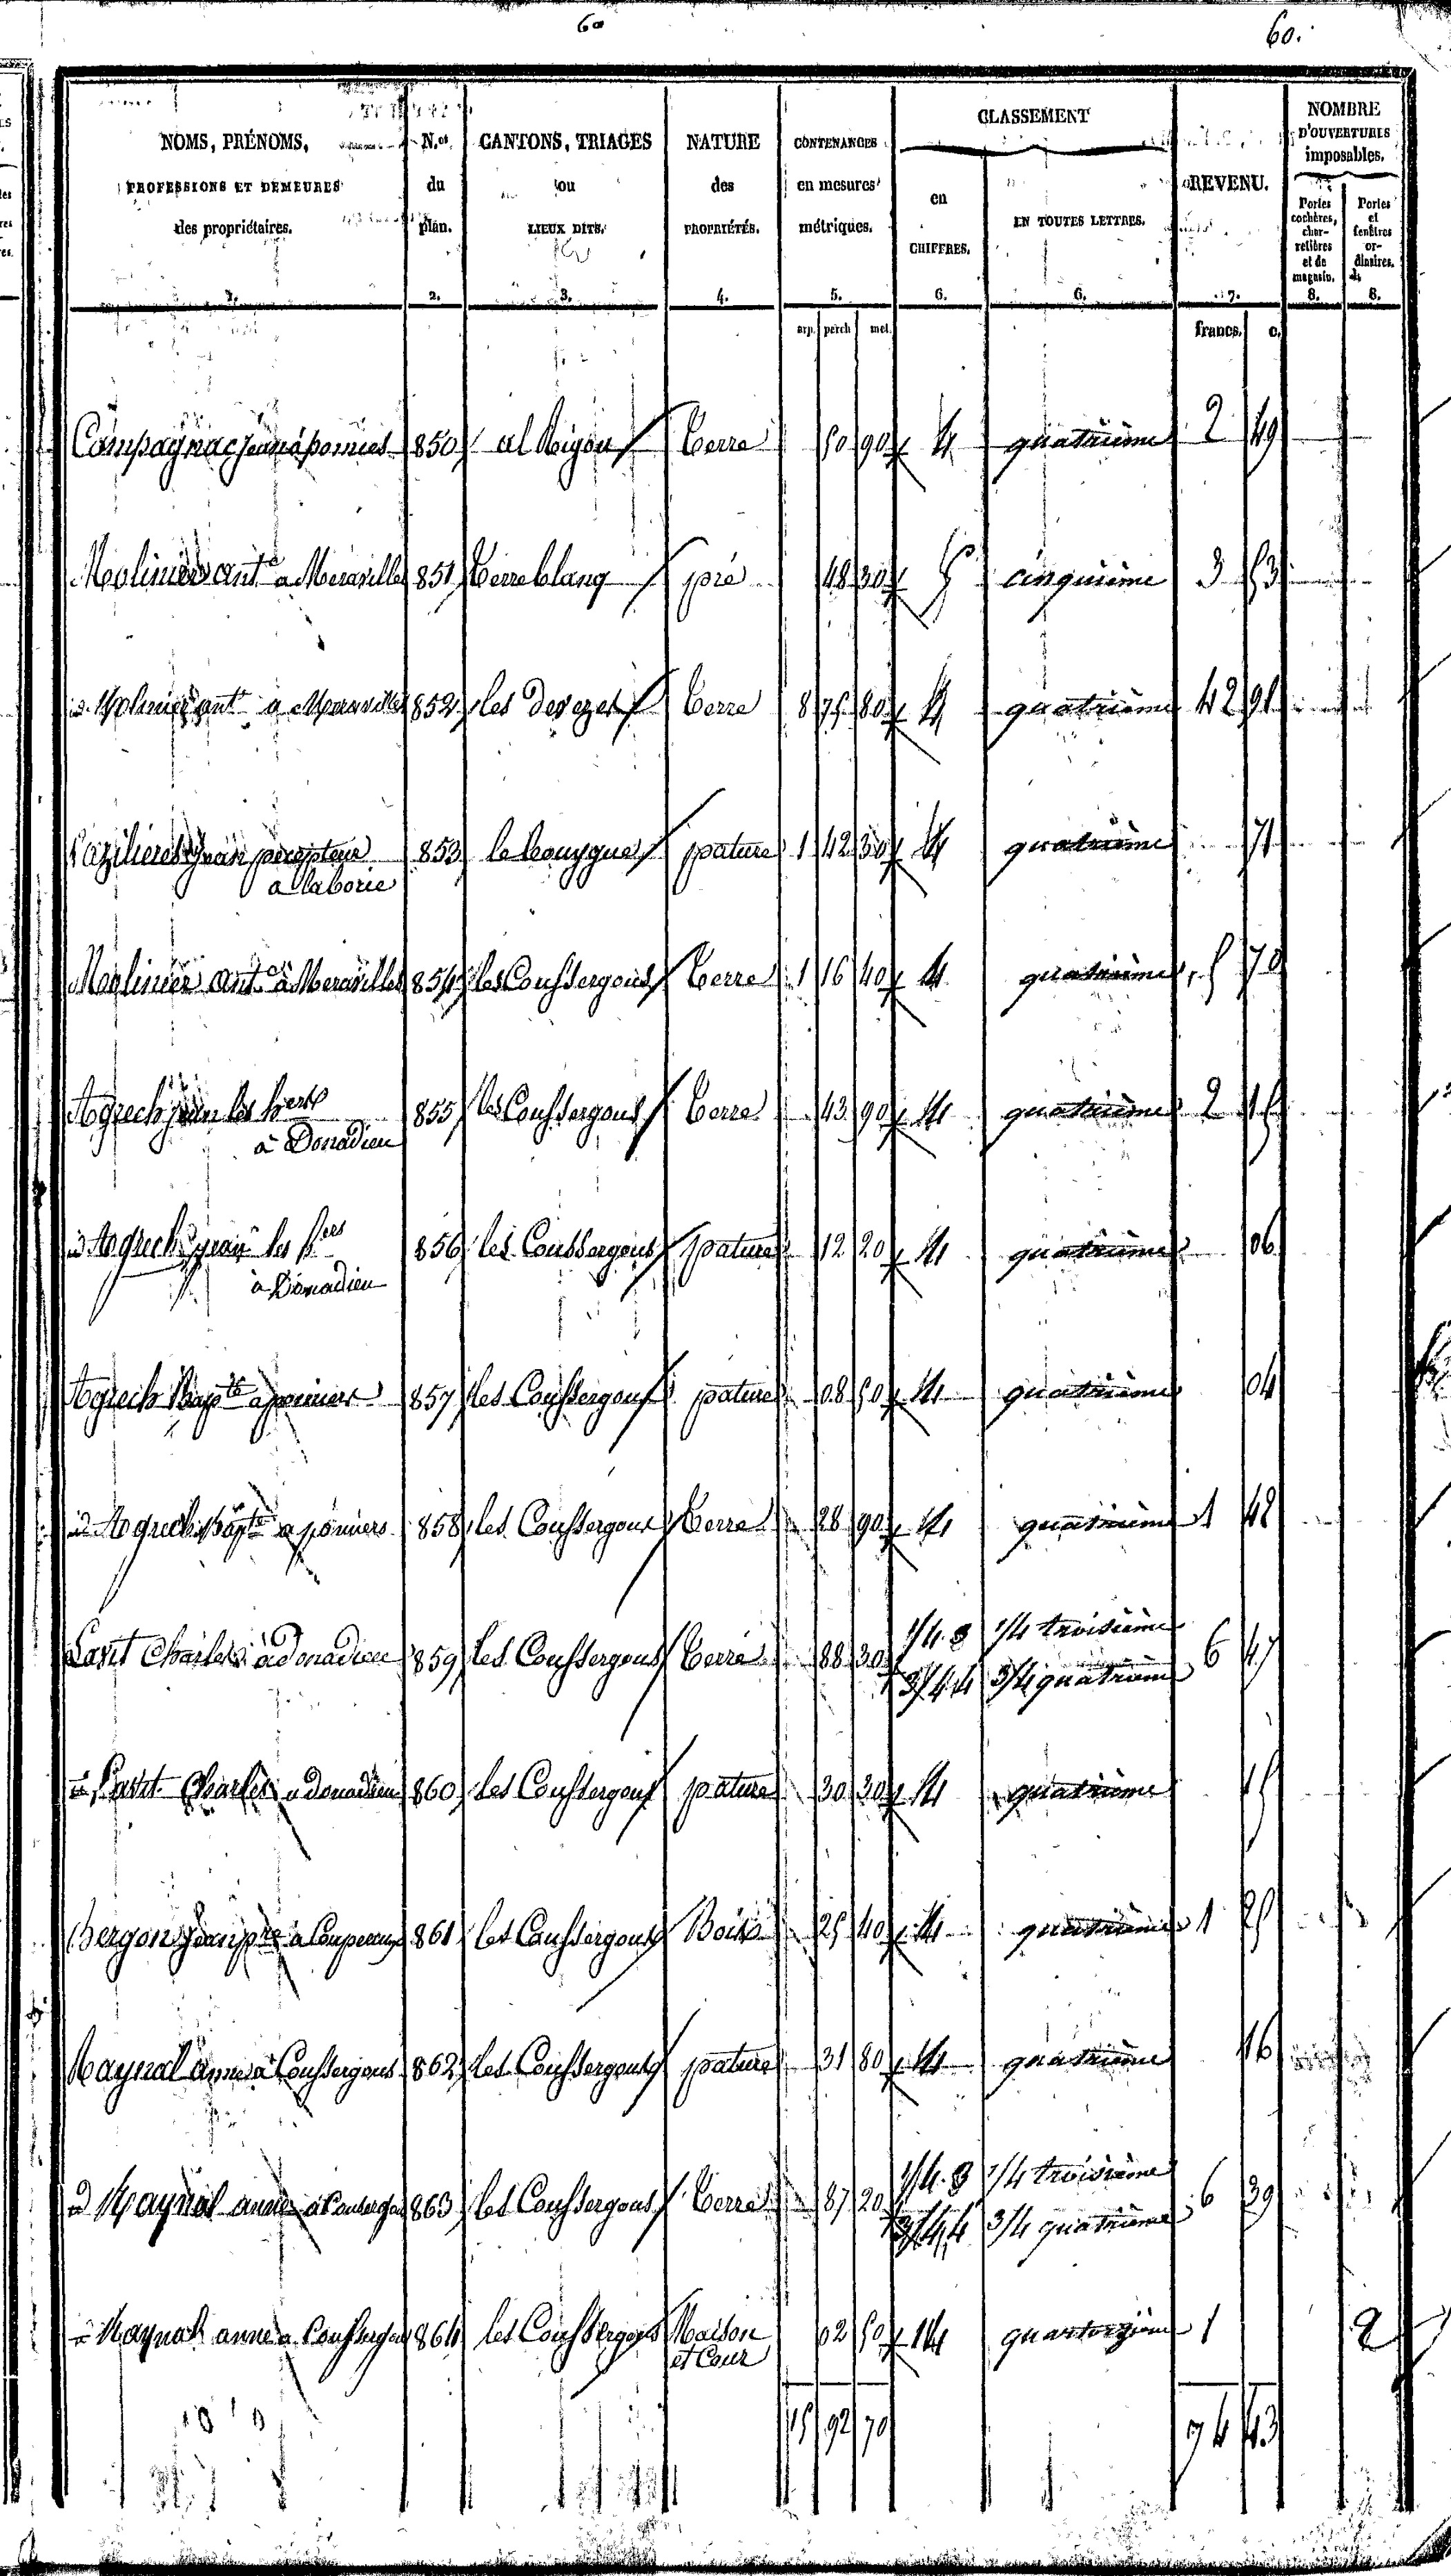 60
60.
NOMS, PRÉNOMS, N.os CANTONS, TRIAGES NATURE CONTENANCES CLASSEMENT REVENU. NOMBRE D'OUVERTURES imposables.
PROFESSIONS ET DEMEURES du ou des en mesures en EN TOUTES LETTRES. Portes cochères, charretières et de magasin. Portes et fenêtres ordinaires.
des propriétaires. plan. LIEUX DITS. PROPRIÉTÉS. métriques. CHIFFRES.
1. 2. 3. 4. 5. 6. 6. 7. 8. 8.
arp. perch met. francs. c.
Campagnac Jean à pomiés 850 al Rigou terre 50 90 4 quatrième 2 49
Molinier ant.e a Meravilles 851 terre blanq pré 48 30 5 cinquième 3 53
id. Molinier ant.e a Meravilles 852 les devezes terre 8 75 80 4 quatrième 42 91
Jean percepteur 853 le bouygue pature 1 42 30 4 quatrième 71
a laborie
Molinier ant.e à Meravilles 854 les Coussergous terre 1 16 40 4 quatrième 5 70
Agrech Jean les hers 855 les Coussergous terre 43 90 4 quatrième 2 15
à Donadieu
id Agrech Jean les hers 856 les Coussergous pature 12 20 4 quatrième 06
à Donadieu
Agrech Bapte a pomiers 857 les Coussergous pature 08 50 4 quatrième 04
id Agrech Bapte a pomiers 858 les Coussergous terre 28 90 4 quatrième 1 42
Charles à Donadieu 859 les Coussergous terre 88 30 1/4 3 1/4 troisième 6 47
3/4 4 3/4 quatrième
id Charles a Donadieu 860 les Coussergous pature 30 30 4 quatrième 15
Bergon Jean pre a 861 les Coussergous Bois 25 40 4 quatrième 1 25
Raynal anne à Coussergous 862 les Coussergous pature 31 80 4 quatrième 16
id Raynal anne à Coussergous 863 les Coussergous terre 87 20 1/4 3 1/4 troisième 6 39
3/4 4 3/4 quatrième
id Raynal anne a Coussergous 864 les Coussergous Maison 02 50 14 quatorzième 1 2
et Cour
15 92 70 74 43